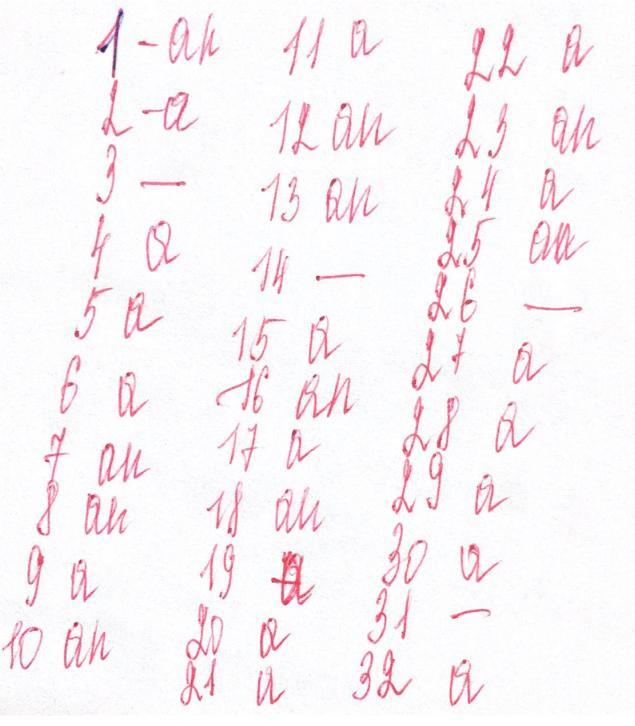 1 - an
2 - a
3 —
4 a
5 a
6 a
7 an
8 an
9 a
10 an
11 a
12 an
13 an
14 —
15 a
16 an
17 a
18 an
19 a
20 a
21 a
22 a
23 an
24 a
25 an
26 —
27 a
28 a
29 a
30 a
31 —
32 a